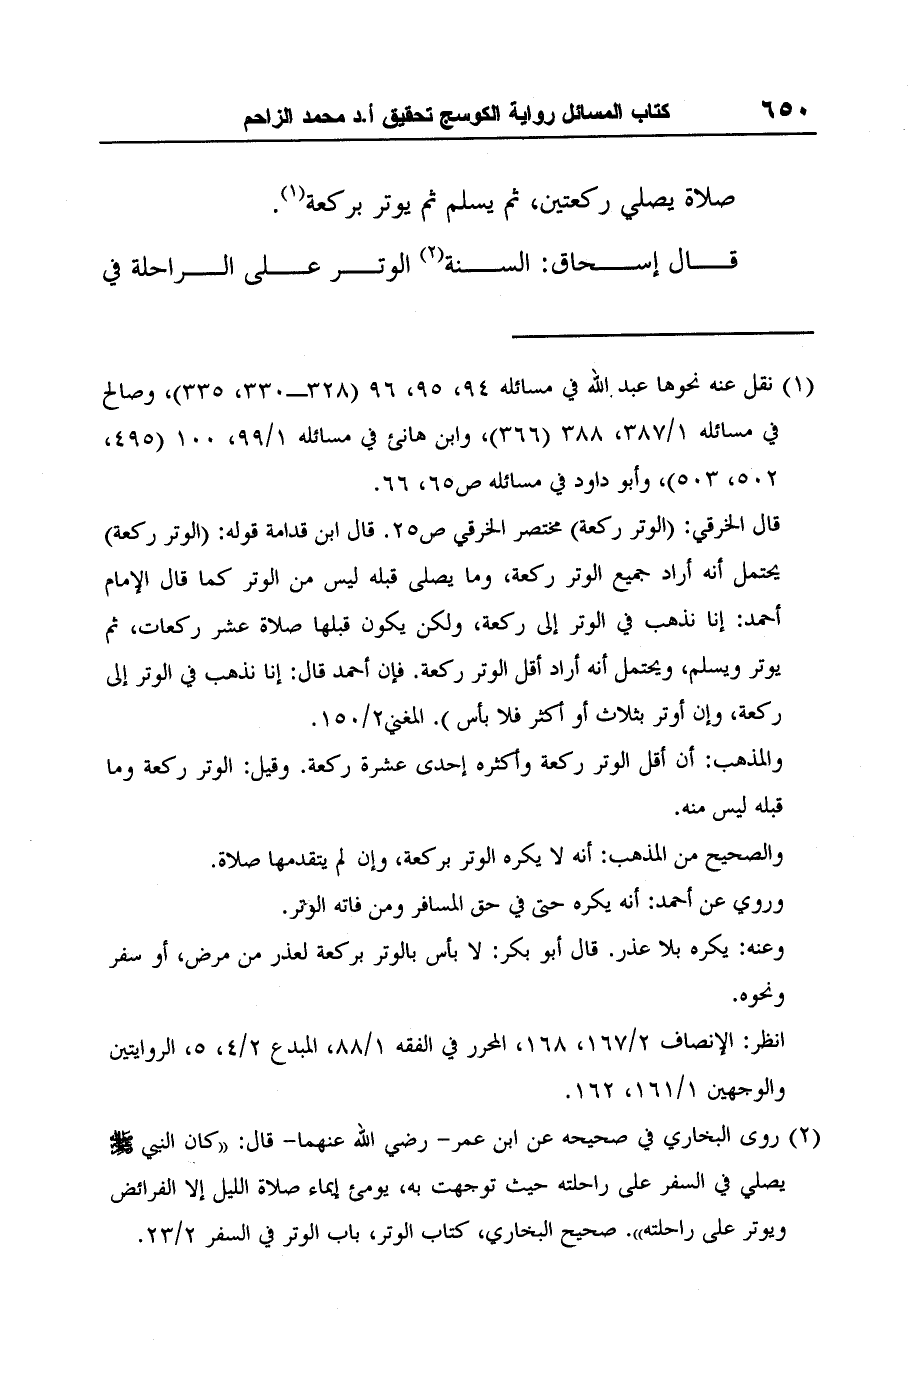 ٦٥٠ كتاب المسائل رواية الكوسج تحقيق أ.د محمد الزاحم
صلاة يصلي ركعتين، ثم يسلم ثم يوتر بركعة(١).
قـــال إســـحاق: الســـنة(٢) الوتـــر عـــلى الـــراحلة في
(١) نقل عنه نحوها عبد الله في مسائله ٩٤، ٩٥، ٩٦ (٣٢٨ــ٣٣٠، ٣٣٥)، وصالح
في مسائله ٣٨٧/١، ٣٨٨ (٣٦٦)، وابن هانئ في مسائله ٩٩/١، ١٠٠ (٤٩٥،
٥٠٢، ٥٠٣)، وأبو داود في مسائله ص٦٥، ٦٦.
قال الخرقي: (الوتر ركعة) مختصر الخرقي ص٢٥. قال ابن قدامة قوله: (الوتر ركعة)
يحتمل أنه أراد جميع الوتر ركعة، وما يصلى قبله ليس من الوتر كما قال الإمام
أحمد: إنا نذهب في الوتر إلى ركعة، ولكن يكون قبلها صلاة عشر ركعات، ثم
يوتر ويسلم، ويحتمل أنه أراد أقل الوتر ركعة. فإن أحمد قال: إنا نذهب في الوتر إلى
ركعة، وإن أوتر بثلاث أو أكثر فلا بأس ). المغني١٥٠/٢.
والمذهب: أن أقل الوتر ركعة وأكثره إحدى عشرة ركعة. وقيل: الوتر ركعة وما
قبله ليس منه.
والصحيح من المذهب: أنه لا يكره الوتر بركعة، وإن لم يتقدمها صلاة.
وروي عن أحمد: أنه يكره حتى في حق المسافر ومن فاته الوتر.
وعنه: يكره بلا عذر. قال أبو بكر: لا بأس بالوتر بركعة لعذر من مرض، أو سفر
ونحوه.
انظر: الإنصاف ١٦٧/٢، ١٦٨، المحرر في الفقه ٨٨/١، المبدع ٤/٢، ٥، الروايتين
والوجهين ١٦١/١، ١٦٢.
(٢) روى البخاري في صحيحه عن ابن عمر- رضي الله عنهما- قال: «كان النبي ﷺ
يصلي في السفر على راحلته حيث توجهت به، يومئ إيماء صلاة الليل إلا الفرائض
ويوتر على راحلته». صحيح البخاري، كتاب الوتر، باب الوتر في السفر ٢٣/٢.